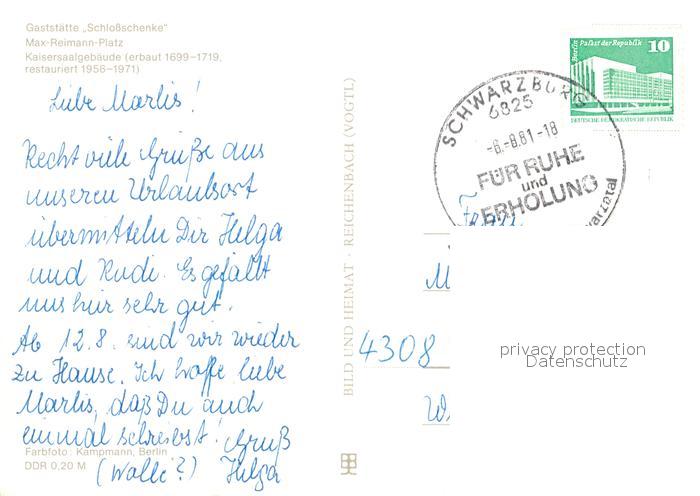 Gaststätte „Schloßschenke"
Max-Reimann-Platz
Kaisersaalgebäude (erbaut 1699–1719,
restauriert 1956–1971)
Liebe Marlis!
Recht viele Grüße aus
unseren Urlaubsort
übermitteln Dir Helga
und Rudi. Es gefällt
uns hier sehr gut.
Ab 12.8. sind wir wieder
zu Hause. Ich hoffe liebe
Marlis, daß Du auch
einmal schreibst! Gruß
(Wolle?) Helga
Farbfoto: Kampmann, Berlin
DDR 0,20 M
BILD UND HEIMAT · REICHENBACH (VOGTL)
Berlin Palast der Republik 10
DEUTSCHE DEMOKRATISCHE REPUBLIK
SCHWARZBURG
6825
-6.-8.81-18
FÜR RUHE
und
ERHOLUNG
M
4308
W
privacy protection
Datenschutz